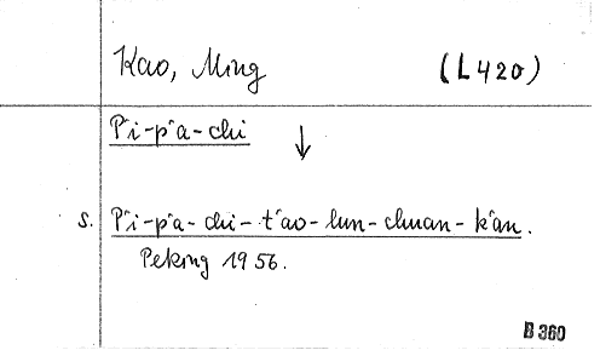 Kao, Ming (L420)
P'i-p'a-chi ↓
s. P'i-p'a-chi-t'ao-lun-chuan-k'an.
Peking 1956.
B 360